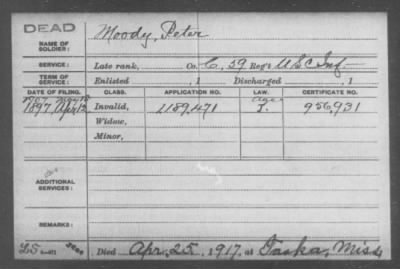 DEAD
NAME OF SOLDIER: Moody, Peter
SERVICE: Late rank, Co. C, 59 Reg't U S C Inf
TERM OF SERVICE: Enlisted , 1 Discharged , 1
DATE OF FILING. CLASS. APPLICATION NO. LAW. CERTIFICATE NO.
1907, May 13 age
1897, Apr 13 Invalid, 1189,471 J. 956,931
Widow,
Minor,
ADDITIONAL SERVICES:
REMARKS:
Died Apr. 25, 1917, at Taska, Miss